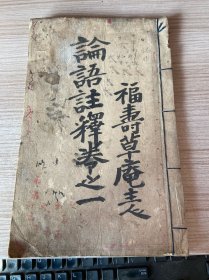 論語註釋卷之一
福壽草庵主